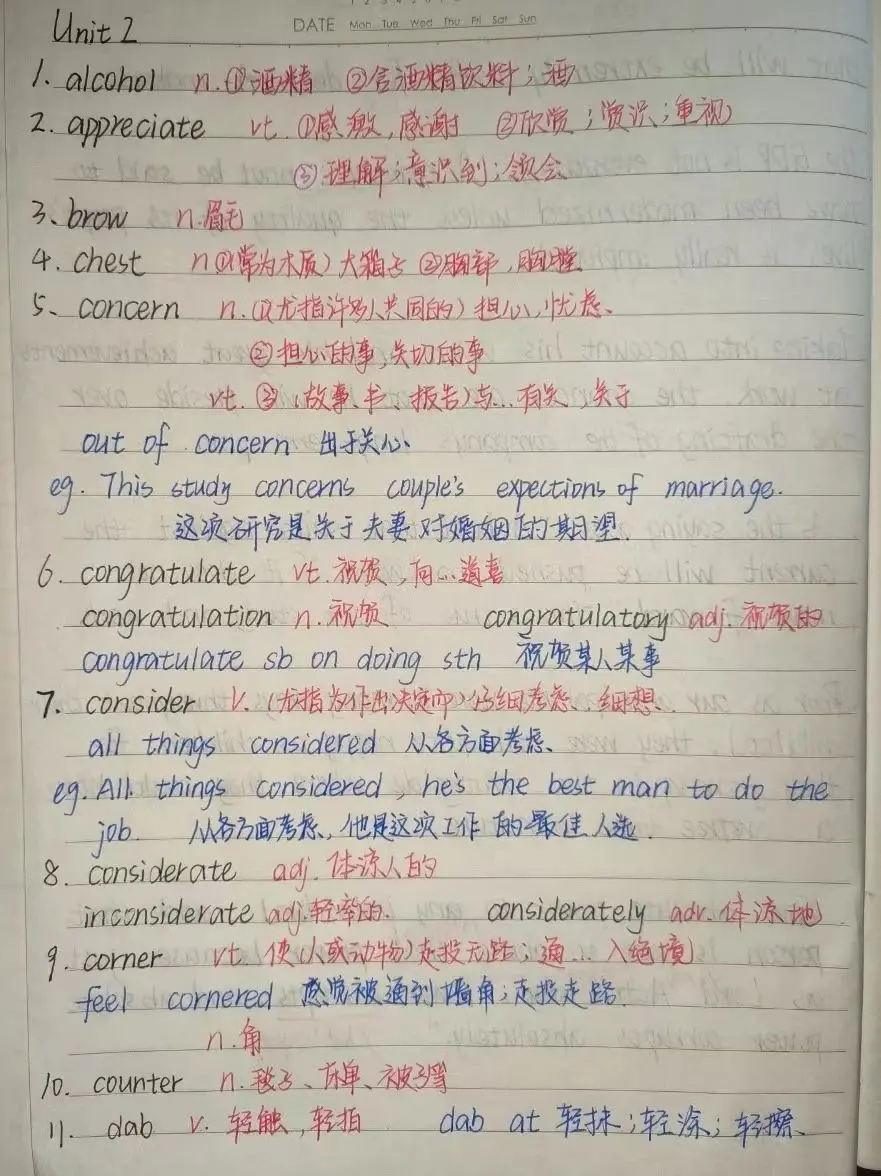 Unit 2
DATE Mon Tue Wed Thu Fri Sat Sun
1. alcohol n.①酒精 ②含酒精饮料；酒
2. appreciate vt. ①感激，感谢 ②欣赏；赏识；重视
③理解；意识到；领会
3. brow n.眉毛
4. chest n①(常为木质）大箱子 ②胸部，胸膛
5、concern n.①(尤指许多人共同的）担心、忧虑、
②担心的事,关切的事
vt. ③（故事、书、报告)与…有关、关于
out of concern 出于关心、
eg. This study concerns couple's expections of marriage.
这项研究是关于夫妻对婚姻的期望.
6. congratulate vt.祝贺,向…道喜
congratulation n.祝贺 congratulatory adj.祝贺的
congratulate sb on doing sth 祝贺某人某事
7. consider v.（尤指为作出决定而)仔细考虑、细想.
all things considered 从各方面考虑、
eg. All things considered, he's the best man to do the
job. 从各方面考虑,他是这项工作的最佳人选.
8. considerate adj.体凉人的
inconsiderate adj.轻率的. considerately adv.体凉地
9. corner vt.使(人或动物)走投无路；逼…入绝境
feel cornered 感觉被逼到墙角；走投走路.
n.角
10. counter n.毯子、床单、被子等
11. dab v.轻触,轻拍 dab at 轻抹；轻涂；轻擦、